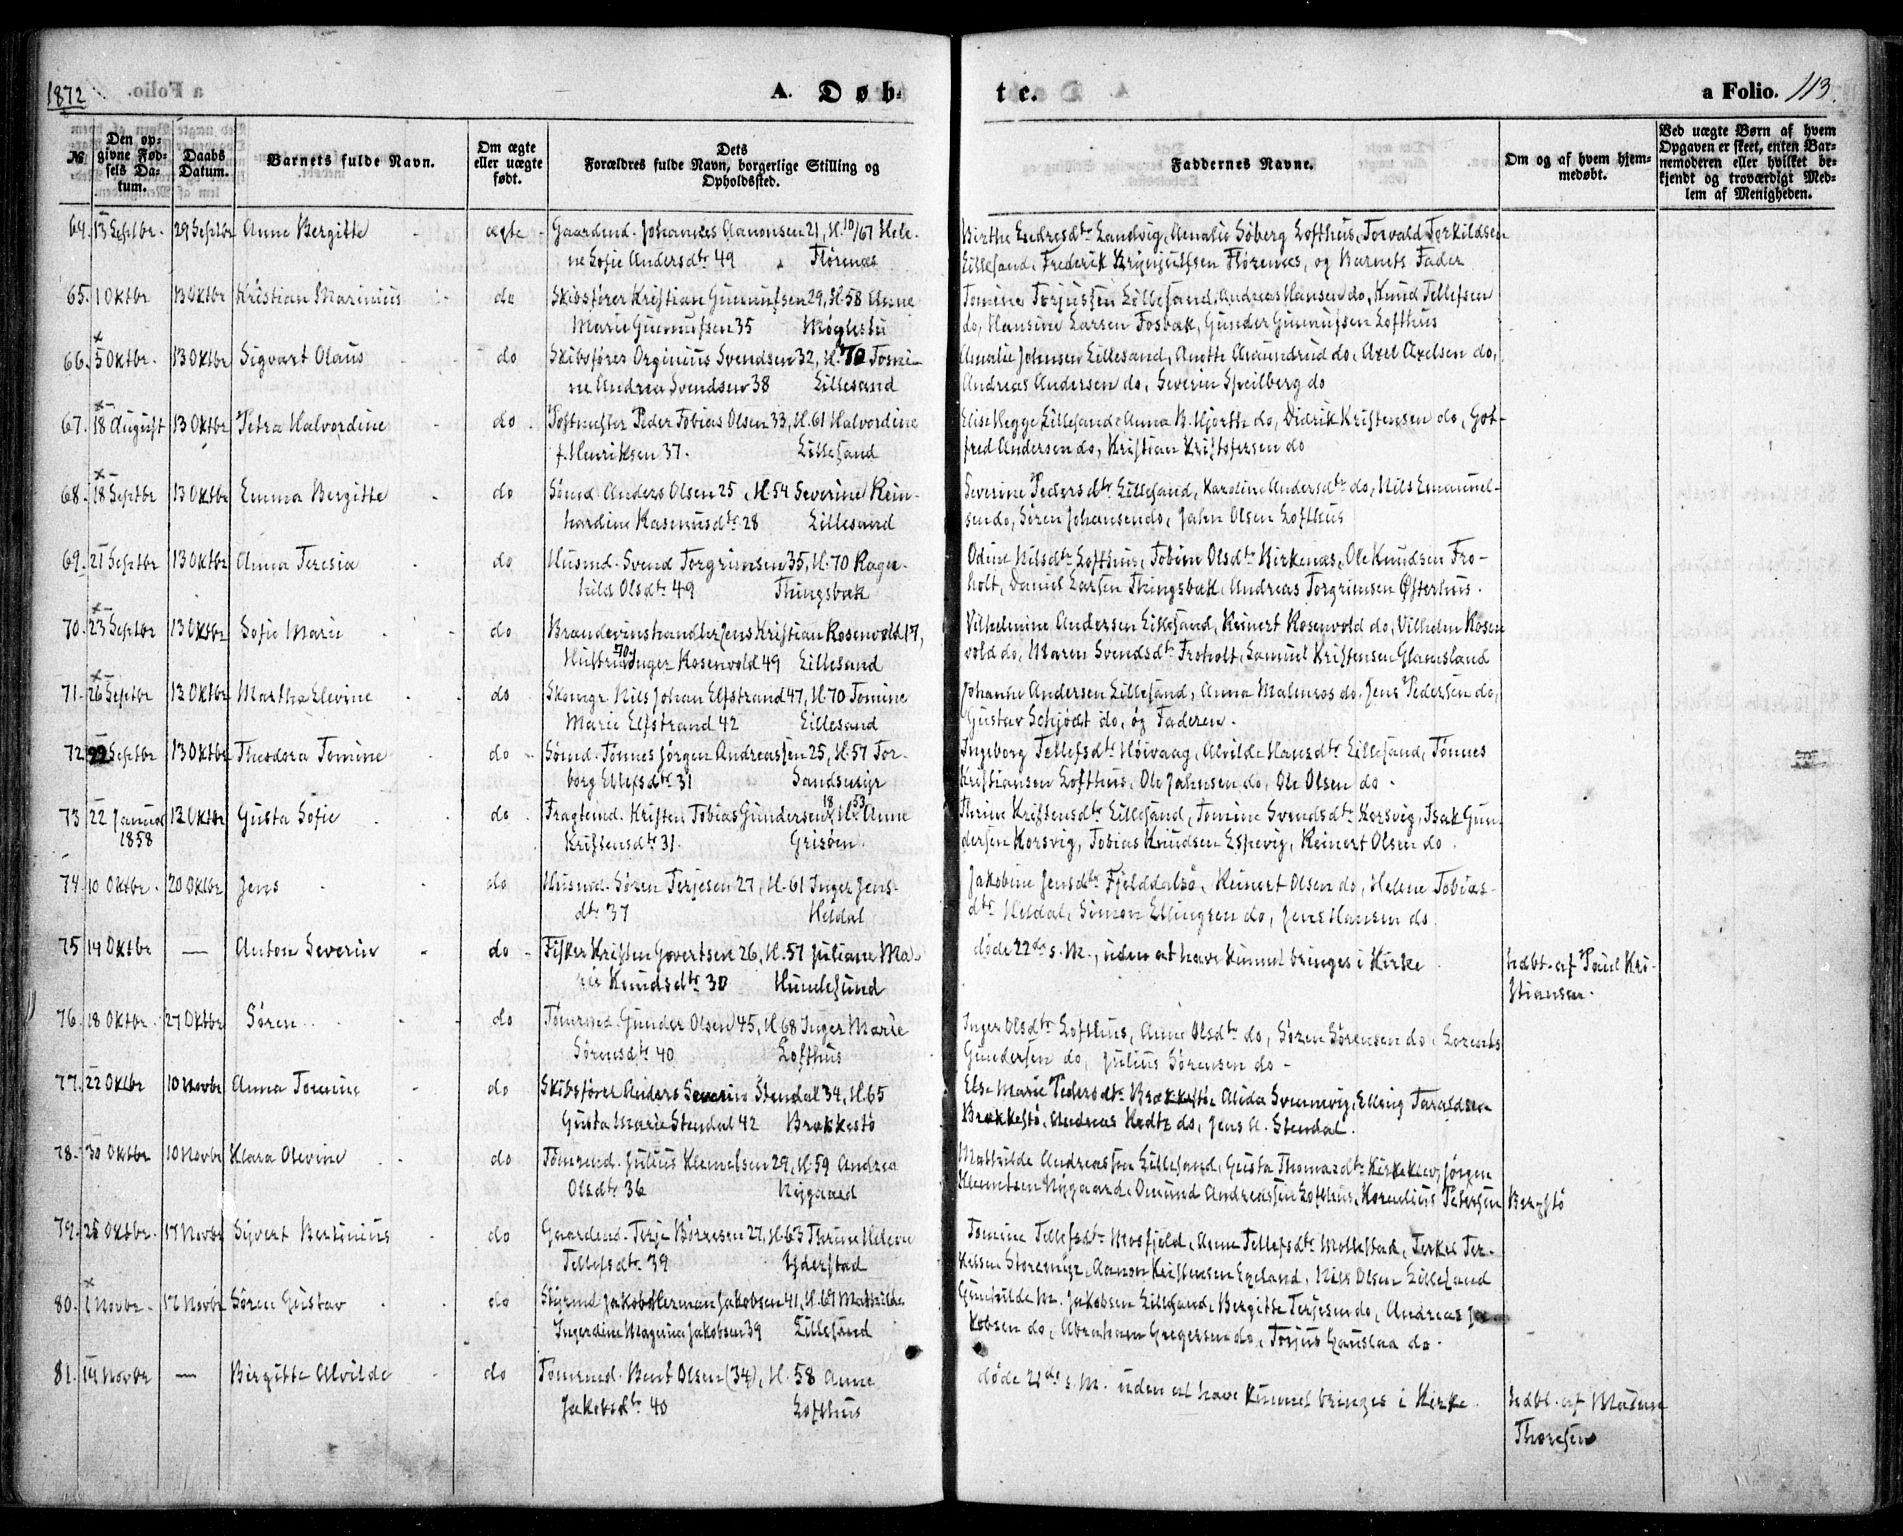 1872
A. Døb-
te.
a Folio. 113.
№
Den op-
givne Fød-
sels Da-
tum.
Daabs
Datum.
Barnets fulde Navn.
Om ægte
eller uægte
født.
Dets
Forældres fulde Navn, borgerlige Stilling og
Opholdssted.
Faddernes Navne.
Om og af hvem hjem-
medøbt.
Ved uægte Børn af hvem
Opgaven er skeet, enten Bar-
nemoderen eller hvilket be-
kjendt og troværdigt Med-
lem af Menigheden.
64. 13 Septbr. 29 Septbr Anne Bergitte - ægte - Gaardmd. Johannes Aanonsen 21, H. 10/67 Hele-
ne Sofie Andersdtr 49 Flørenæs
Birthe Endresdtr Landvig, Amalie Söberg Lofthus, Torvald Torkildsen
Lillesand, Frederik Brynjulfsen Flørenæs, og Barnets Fader
65. 1 Oktbr 13 Oktbr Kristian Marinius - do Skibsfører Kristian Gunnufsen 29, H. 58 Anne
Marie Gunnufsen 35 Møglestu
Tomine Torjussen Lillesand, Andreas Hansen do, Knud Tellefsen
do, Hansine Larsen Fosbæk, Gunder Gunnufsen Lofthus
66. 5 Oktbr. 13 Oktbr Sigvart Olaus - do Skibsfører Orginius Svendsen 32, H. 70 Tomi-
ne Andrea Svendsen 38 Lillesand
Amalie Johnsen Lillesand, Anette Amundrud do, Axel Axelsen do,
Andreas Andersen do, Severin Speilberg do
67. 18 August 13 Oktbr Petra Halvordine - do Postmester Peder Tobias Olsen 33, H. 61 Halvordine
f. Henriksen 37. Lillesand
Elise Hegge Lillesand, Anna B. Hjorth do, Didrik Kristensen do, Got-
fred Andersen do, Kristian Kristofersen do
68. 18 Septbr 13 Oktbr Emma Bergitte - do Sømd. Anders Olsen 25, H. 54 Severine Rein-
hardine Rasmusdtr 28 Lillesand
Severine Pedersdtr Lillesand, Karoline Andersdtr do, Nils Emanuel-
sen do, Søren Johansen do, Jahn Olsen Lofthus
69. 21 Septbr 13 Oktbr Anna Teresia - do Husmd. Svend Torgrimsen 35, H. 70 Ragn-
hild Olsdtr 49 Thingsbæk
Odine Nilsdtr Lofthus, Tobine Olsdtr Birkenæs, Ole Knudsen Fro-
holt, Daniel Larsen Thingsbæk, Andreas Torgrimsen Østerhus.
70. 23 Septbr 13 Oktbr Sofie Marie - do Brændevinshandler Jens Kristian Rosenvold 17,
Hustru 70 Inger Rosenvold 49 Lillesand
Vilhelmine Andersen Lillesand, Reinert Rosenvold do, Vilhelm Rosen
vold do, Maren Svendsdtr Froholt, Samuel Kristensen Glamsland
71. 26 Septbr 13 Oktbr Martha Elevine - do Skomgr. Nils Johan Elfstrand 47, H. 70 Tomine
Marie Elfstrand 42 Lillesand
Johanne Andersen Lillesand, Anna Malmros do, Jens Pedersen do,
Gustav Schjødt do, og Faderen.
72. 22 Septbr 13 Oktbr Theodora Tomine do - Sømd. Tønnes Jørgen Andreassen 25, H. 57 Tor-
borg Ellefsdtr 31 Sandsmyr
Ingeborg Tellefsdtr Høivaag, Alvilde Hansdtr Lillesand, Tønnes
Kristiansen Lofthus, Ole Jahnsen do, Ole Olsen do.
73 22 Januar 13 Oktbr Gusta Sofie - do. Fragtemd. Kristen Tobias Gundersen 18, H. 53 Anne
1858 Kristensdtr 31. Grisöen.
Thrine Kristensdtr Lillesand, Tomine Svendsdtr Korsvig, Isak Gun-
dersen Korsvig, Tobias Knudsen Espevig, Reinert Olsen do.
74. 10 Oktbr. 20 Oktbr Jens - do Husmd. Søren Terjesen 27, H. 61 Inger Jens-
dtr 37 Heldal
Jakobine Jensdtr Fjelddalsø, Reinert Olsen do, Helene Tobias-
dtr Heldal, Simon Ellingsen do, Jens Hansen do.
75 14 Oktbr — Anton Severin - do - Fisker Kristen Govertsen 26, H. 57 Juliane Ma-
rie Knudsdtr 30 Humlesund
døde 22de s. M., uden at have kunnet bringes i Kirke
hdbt. af Paul Kri-
stiansen.
76. 18 Oktbr. 27 Oktbr Søren - do Tømrmd. Gunder Olsen 45, H. 68 Inger Marie
Sørensdtr 40 Lofthus
Inger Olsdtr Lofthus, Anne Olsdtr do, Søren Sørensen do, Lorents
Gundersen do, Julius Sørensen do -
77. 22 Oktbr 10 Novbr Anna Tomine do Skibsfører Anders Severin Stendal 34, H. 65
Gusta Marie Stendal 42 Brækkestø
Else Marie Pedersdtr Brækkestø, Alida Svennevig, Elling Taraldsen
Brækkestø, Andreas Hedtz do, Jens A. Stendal.
78. 30 Oktbr 10 Novbr Klara Olevine - do Tømrmd. Julius Klemetsen 29, H. 59 Andrea
Olsdtr 36 Nygaard
Mathilde Andreassen Lillesand, Gusta Thomasdtr Kirkeklev, Jørgen
Klemetsen Nygaard, Omund Andreassen Lofthus, Kornelius Petersen Bergstø
79. 25 Oktbr. 17 Novbr Syvert Bertinius do Gaardmd. Terje Børresen 27, H. 63 Thrine Helene
Tellefsdtr 39 Ytderstad
Tomine Tellefsdtr Mosfjeld, Anne Tellefsdtr Mollestad, Terkel Ter-
kelsen Storemyr, Aanon Kristensen Egeland, Nils Olsen Lillesand
80. 1 Novbr. 17 Novbr Søren Gustav - do Styrmd Jakob Herman Jakobsen 41, H. 67 Mathilde
Ingerdine Magrine Jakobsen 39 Lillesand
Gunhilde M. Jakobsen Lillesand, Bergitte Terjesen do, Andreas Ja-
kobsen do, Abraham Gregersen do, Torjus Hauslaa do.
81. 14 Novbr — Birgitte Alvilde - do Tømrmd. Bent Olsen (34), H. 58 Anne
Jakobsdtr 40 Lofthus
døde 21de s. M. uden at have kunnet bringes i Kirke.
hdbt. af Madame
Thoresen